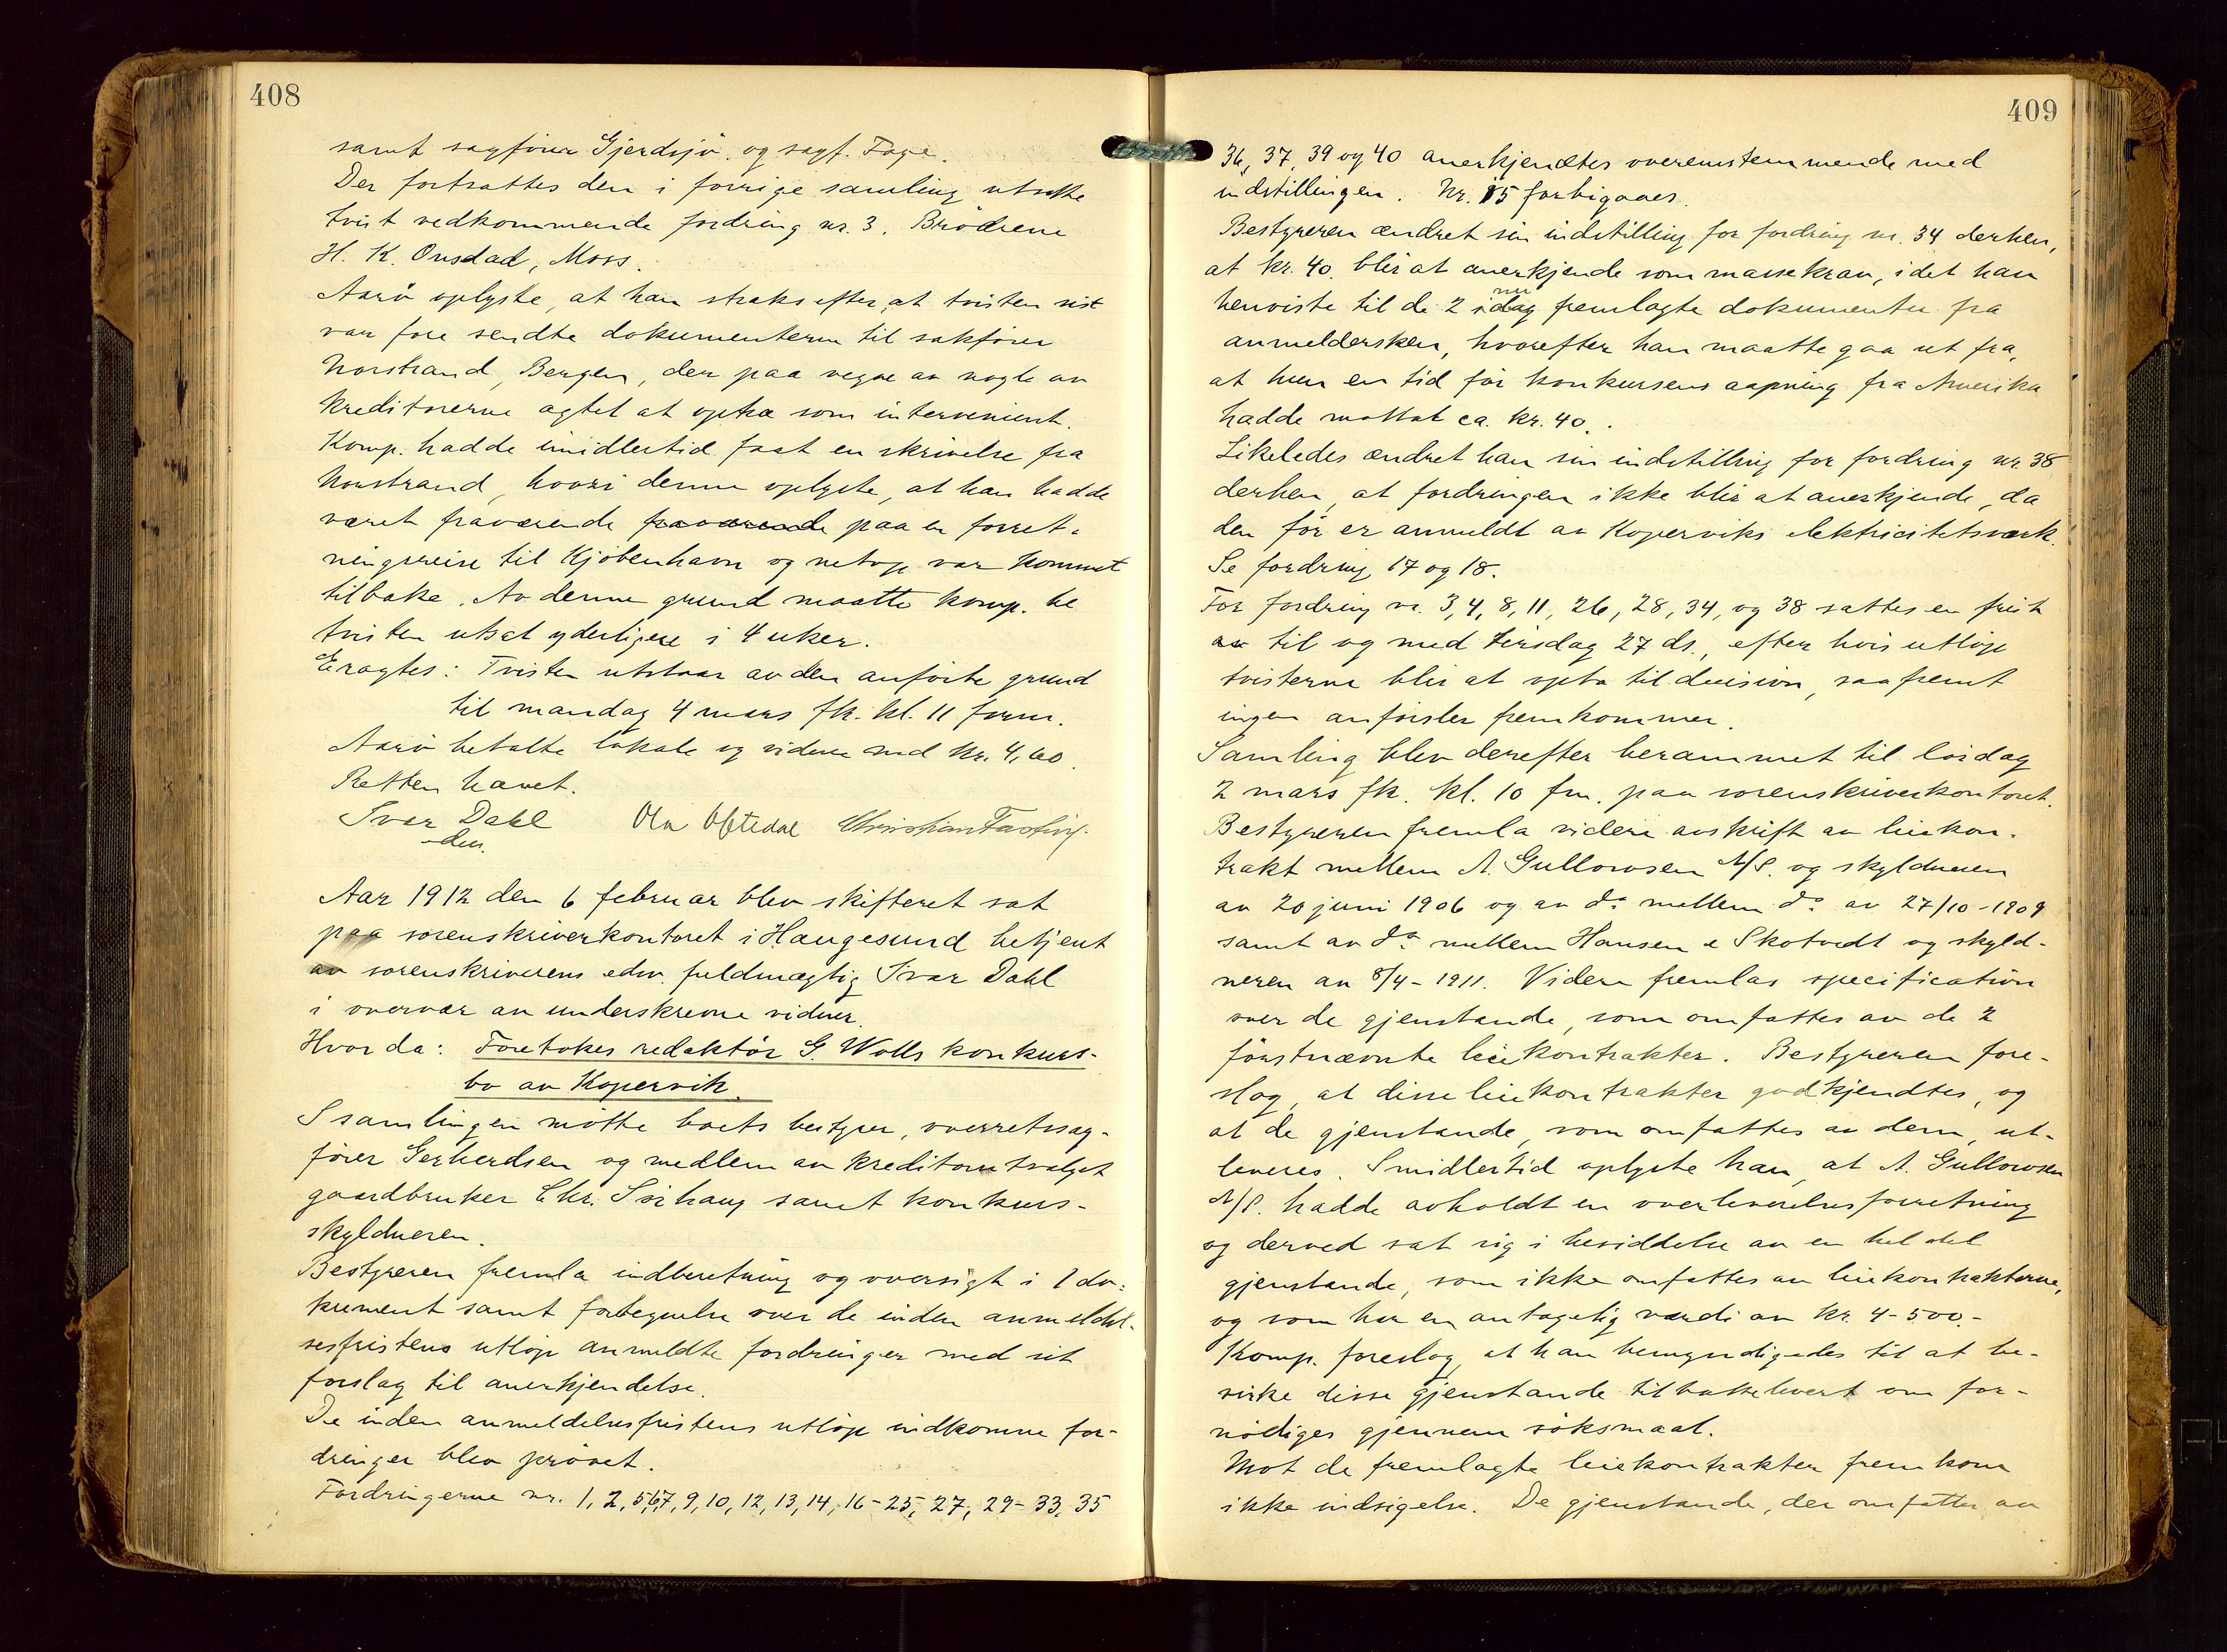 408
samt sagfører Gjerdsjø og sagf. Fage.
Der fortsattes den i forrige samling utsatte
tvist vedkommende fordring nr. 3. Brødrene
H. K. Onsdad, Moss.
Aarø oplyste, at han straks efter, at tvisten sist
var fore sendte dokumenterne til sakfører
Norstrand, Bergen, der paa vegne av nogle av
kreditorerne agtet at optræ som intervenient.
Komp. hadde imidlertid faat en skrivelse fra
Norstrand, hvori denne oplyste, at han hadde
været fraværende fraværende paa en forret-
ningsreise til Kjøbenhavn og netop var kommet
tilbake. Av denne grund maatte komp. be
tvisten utsat yderligere i 4 uker.
Eragtes: Tvisten utstaar av den anførte grund
til mandag 4 mars fk. kl. 11 form.
Aarø betalte lokale og vidner med kr. 4,60.
Retten hævet.
Ivar Dahl Ola Oftedal Christian Fasting.
edsv.
Aar 1912 den 6 februar blev skifteret sat
paa sorenskriverkontoret i Haugesund betjent
av sorenskriverens edsv. fuldmægtig Ivar Dahl
i overvær av underskrevne vidner.
Hvorda: Foretokes redaktør G. Wolls konkurs-
bo av Kopervik.
I samlingen møtte boets bestyrer, overretssag-
fører Gerherdsen og medlem av kreditorutvalget
gaardbruker Chr. Sørhaug samt konkurs-
skyldneren.
Bestyreren fremla indberetning og oversigt i 1 do-
kument samt fortegnelse over de inden anmeldel-
sesfristens utløp anmeldte fordringer med sit
forslag til anerkjendelse.
De inden anmeldelsesfristens utløp indkomne for-
dringer blev prøvet.
Fordringerne nr. 1, 2, 5, 6, 7, 9, 10, 12, 13, 14, 16-25, 27, 29-33, 35
409
36, 37, 39 og 40 anerkjendtes overensstemmende med
indstillingen. Nr. 15 forbigaaes.
Bestyreren ændret sin indstilling for fordring nr. 34 derhen,
at kr. 40. blir at anerkjende som massekrav, idet han
nu
henviste til de 2 idag fremlagte dokumenter fra
anmeldersken, hvorefter han maatte gaa ut fra,
at hun en tid før konkursens aapning fra Amerika
hadde mottat ca. kr. 40.
Likeledes ændret han sin indstilling for fordring nr. 38
derhen, at fordringen ikke blir at anerkjende, da
den før er anmeldt av Koperviks elektricitetsværk.
Se fordring 17 og 18.
For fordring nr. 3, 4, 8, 11, 26, 28, 34, og 38 sattes en frist
av til og med tirsdag 27 ds., efter hvis utløp
tvisterne blir at opta til decision, saafremt
ingen anførsler fremkommer.
Samling blev derefter berammet til lørdag
2 mars fk. kl. 10 fm. paa sorenskriverkontoret.
Bestyreren fremla videre avskrift av leiekon-
trakt mellem A. Gullowsen A/S. og skyldneren
av 20 juni 1906 og av do mellem do av 27/10-1909
samt av do mellem Hansen & Skotvedt og skyld-
neren av 8/4-1911. Videre fremlas specification
over de gjenstande, som omfattes av de 2
førstnævnte leiekontrakter. Bestyreren fore-
slog, at disse leiekontrakter godkjendtes, og
at de gjenstande, som omfattes av dem, ut-
leveres. Imidlertid oplyste han, at A. Gullowsen
A/S. hadde avholdt en overleverelsesforretning
og derved sat sig i besiddelse av en hel del
gjenstande, som ikke omfattes av leiekontrakterne,
og som har en antagelig værdi av kr. 4-500.-
Komp. foreslog, at han bemyndigedes til at be-
virke disse gjenstande tilbakelevert om for-
nødiges gjennem søksmaal.
Mot de fremlagte leiekontrakter fremkom
ikke indsigelse. De gjenstande, der omfattes av